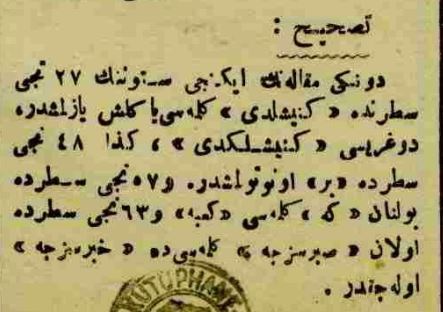 تصحیح :
دونكی مقاله‌نك ایكنجی ستوننك ٢٧ نجی
سطرنده « كنیشلدی » كلمه‌سی یاكلش یازلمشدر.
دوغریسی « كنیشلكدی » ، كذا ٤٨ نجی
سطرده «بر» اونوتولمشدر. و٥٧ نجی سطرده
بولنان « كه » كلمه‌سی «كعبه» و٦٣ نجی سطرده
اولان « صبرسزجه » كلمه‌سی‌ده « خبرسزجه »
اوله‌جقدر .
KUTUPHANE